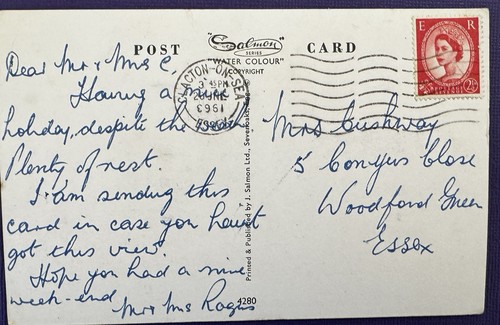 POST CARD
"Salmon"
SERIES
"WATER COLOUR"
COPYRIGHT
Dear Mr & Mrs C,
Having a nice
holiday, despite the
Plenty of rest.
I am sending this
card in case you havnt
got this view.
Hope you had a nice
week-end
Mr & Mrs Rogers
CLACTON-ON-SEA
1963
ESSEX
E R
Printed & Published by J. Salmon Ltd., Sevenoaks
4280
Mrs Cushway
5 Conyers Close
Woodford Green
Essex